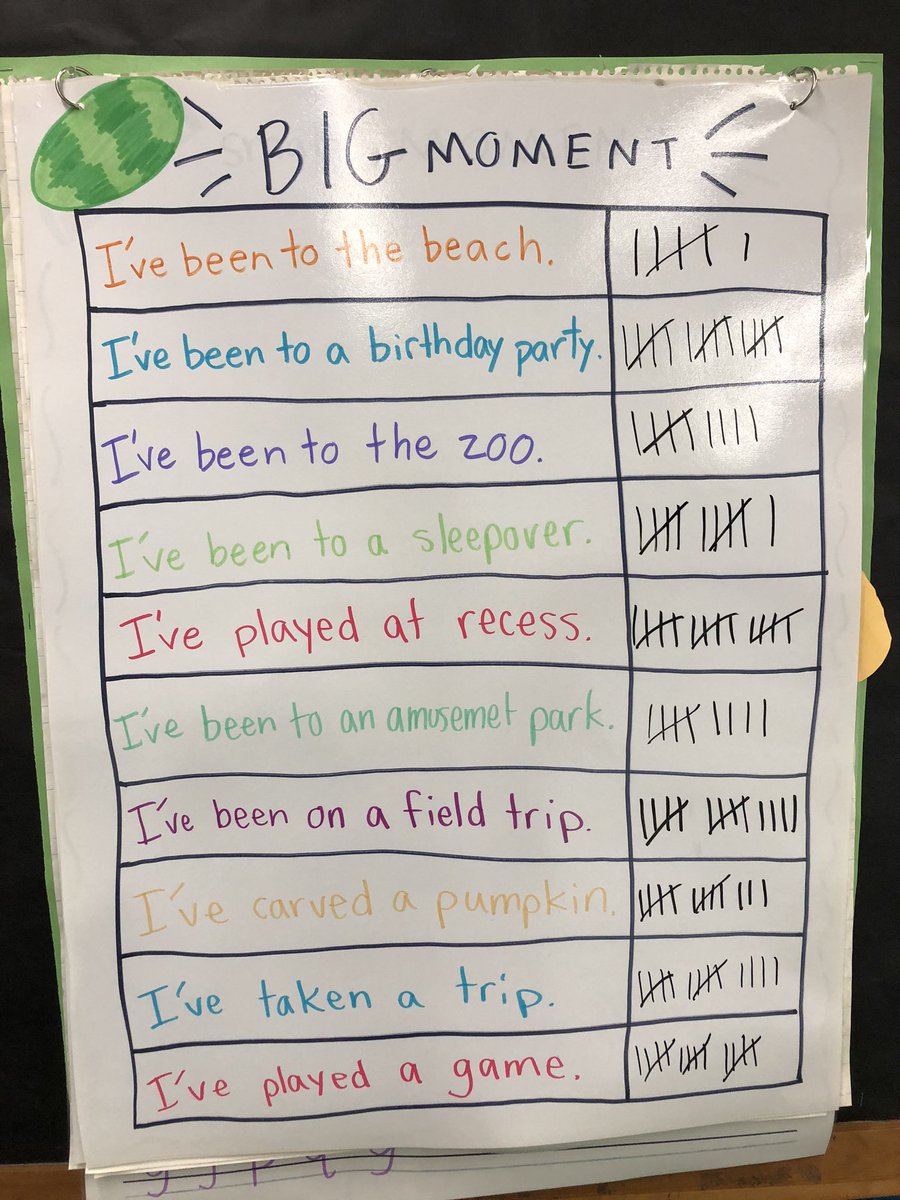 BIG MOMENT
I've been to the beach.
I've been to a birthday party.
I've been to the zoo.
I've been to a sleepover.
I've played at recess.
I've been to an amusemet park.
I've been on a field trip.
I've carved a pumpkin.
I've taken a trip.
I've played a game.